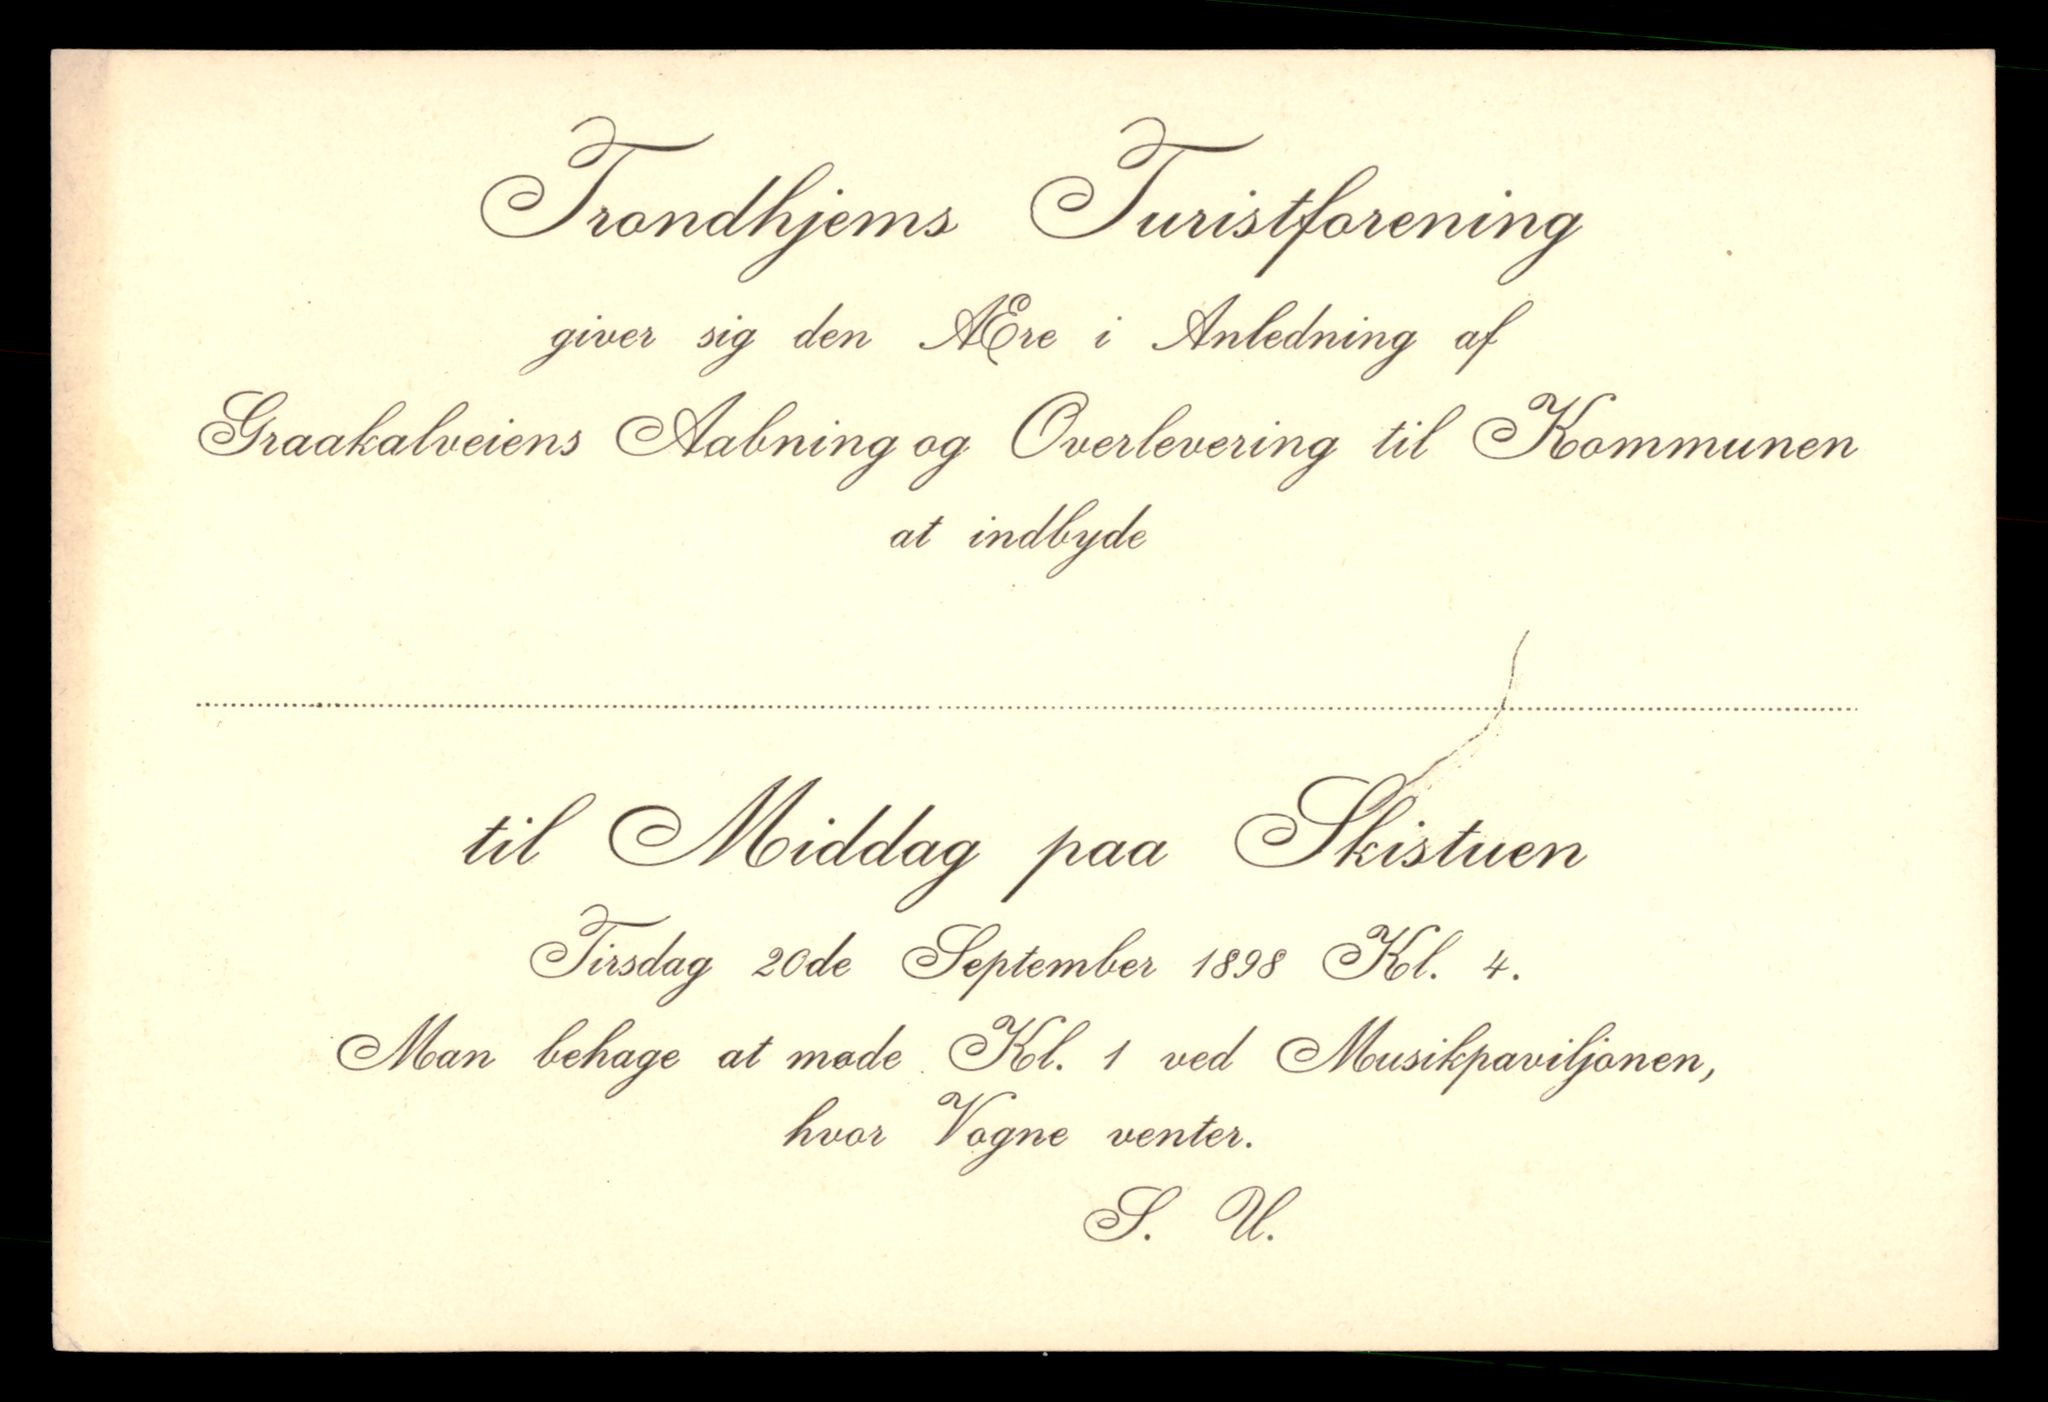 Trondhjems Turistforening
giver sig den Ære i Anledning af
Graakalveiens Aabning og Overlevering til Kommunen
at indbyde
til Middag paa Skistuen
Tirsdag 20de September 1898 Kl. 4.
Man behage at møde Kl. 1 ved Musikpaviljonen,
hvor Vogne venter.
S. U.